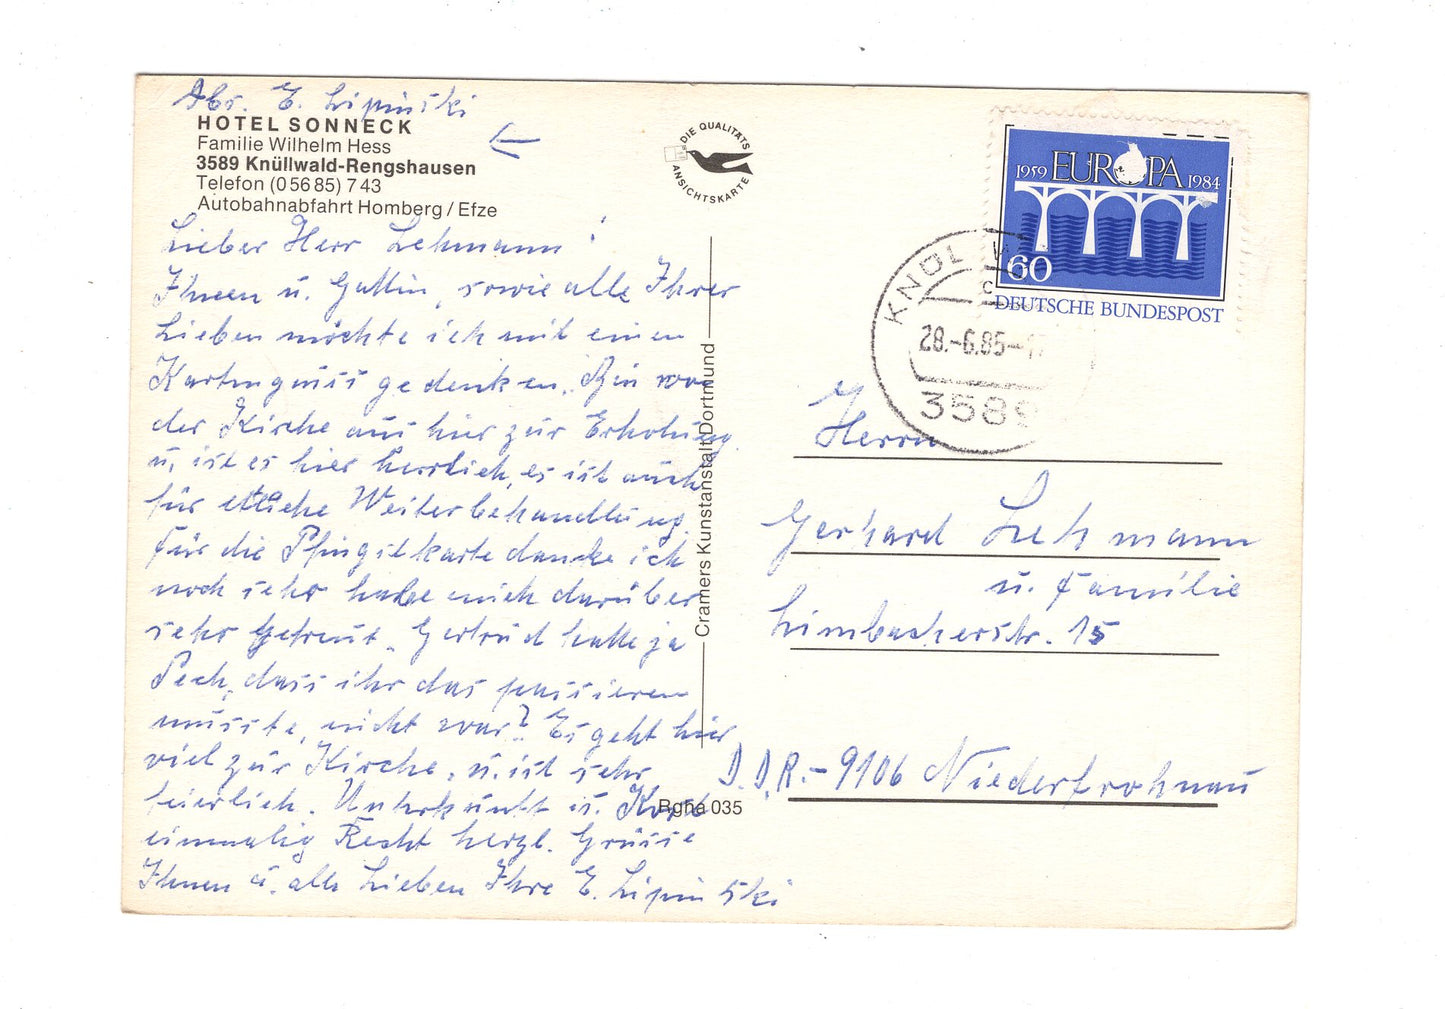 Abs. E. Lipinski
HOTEL SONNECK
Familie Wilhelm Hess
3589 Knüllwald-Rengshausen
Telefon (05685) 743
Autobahnabfahrt Homberg/Efze
Lieber Herr Lehmann!
Ihnen u. Gattin, sowie alle Ihrer
Lieben möchte ich mit einen
Kartengruss gedenken. Bin von
der Kirche aus hier zur Erholung
u. ist es hier herrlich, es ist auch
für etliche Weiterbehandlung.
Für die Pfingstkarte danke ich
noch sehr habe mich darüber
sehr gefreut. Gertrud hatte ja
Pech, dass ihr das passieren
musste, nicht war? Es geht hier
viel zur Kirche, u. ist sehr
feierlich. Unterkunft u. Kost
einmalig Recht herzl. Grüsse
Ihnen u. alle Lieben Ihre E. Lipinski
DIE QUALITÄTS
ANSICHTSKARTE
Cramers Kunstanstalt Dortmund
Rgha 035
1959 EUROPA 1984
60
DEUTSCHE BUNDESPOST
28.-6.85
3589
Herrn
Gerhard Lehmann
u. Familie
Limbacherstr. 15
D.D.R.-9106 Niederfrohnau